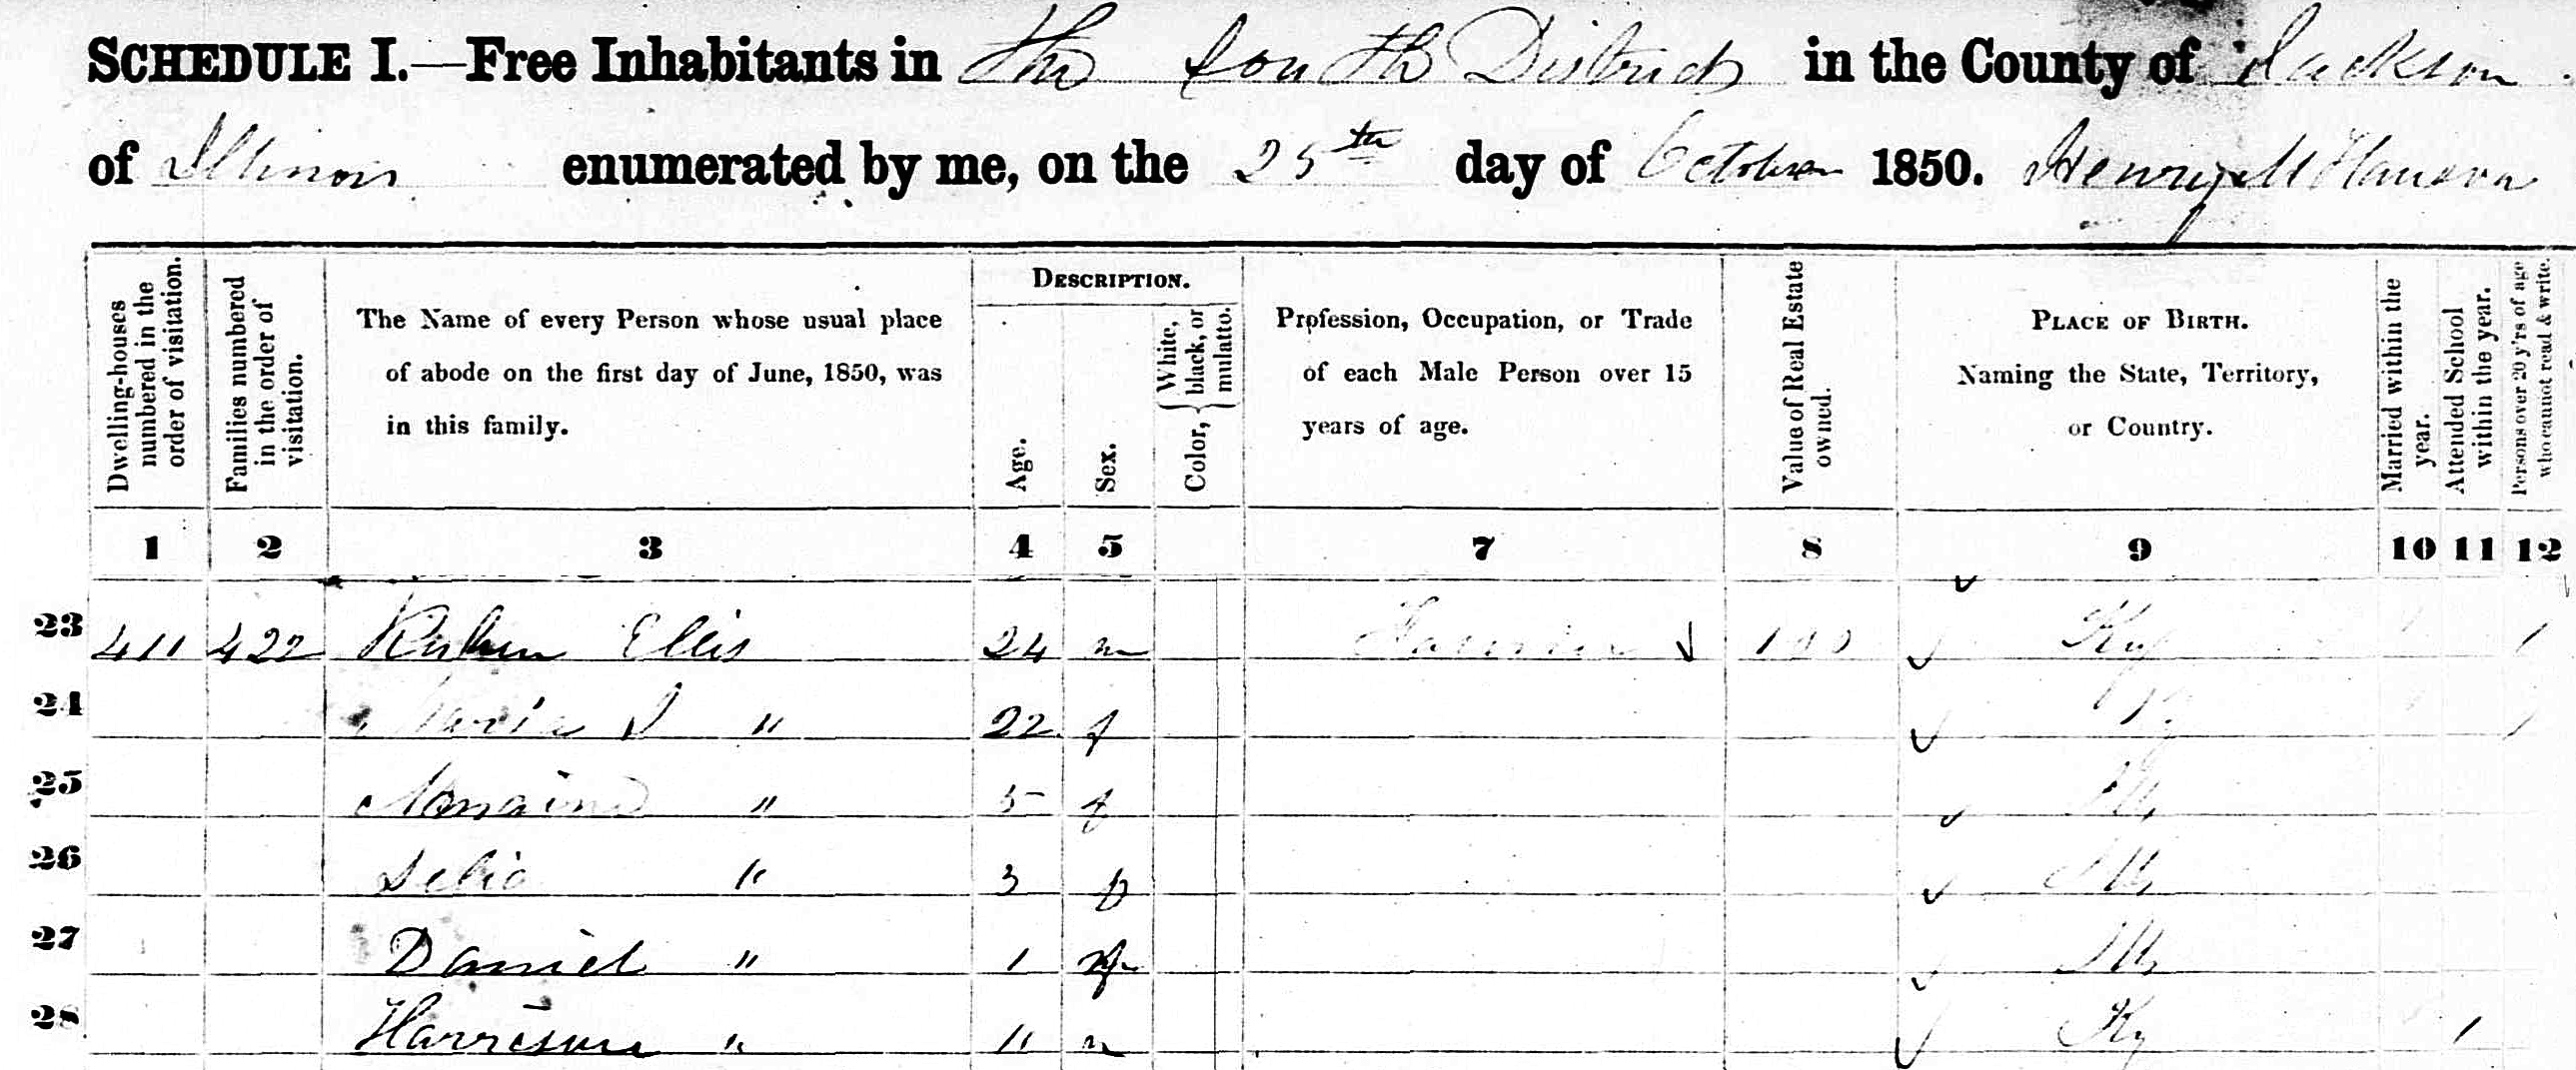 SCHEDULE I.—Free Inhabitants in the South District in the County of Jackson
of Illinois enumerated by me, on the 25th day of October 1850. Henry M Hanson
Dwelling-houses numbered in the order of visitation.
Families numbered in the order of visitation.
The Name of every Person whose usual place
of abode on the first day of June, 1850, was
in this family.
DESCRIPTION.
Age.
Sex.
Color, { White, black, or mulatto.
Profession, Occupation, or Trade
of each Male Person over 15
years of age.
Value of Real Estate owned.
PLACE OF BIRTH.
Naming the State, Territory,
or Country.
Married within the year.
Attended School within the year.
Persons over 20 y'rs of age who cannot read & write.
1 2 3 4 5 7 8 9 10 11 12
23 411 422 Ellis 24 m Farmer 100 Ky /
24 22 f Ky /
25 " 5 f Ill
26 " 3 f Ill
27 Daniel " 1 Ill
28 Harrison " 11 m Ky /